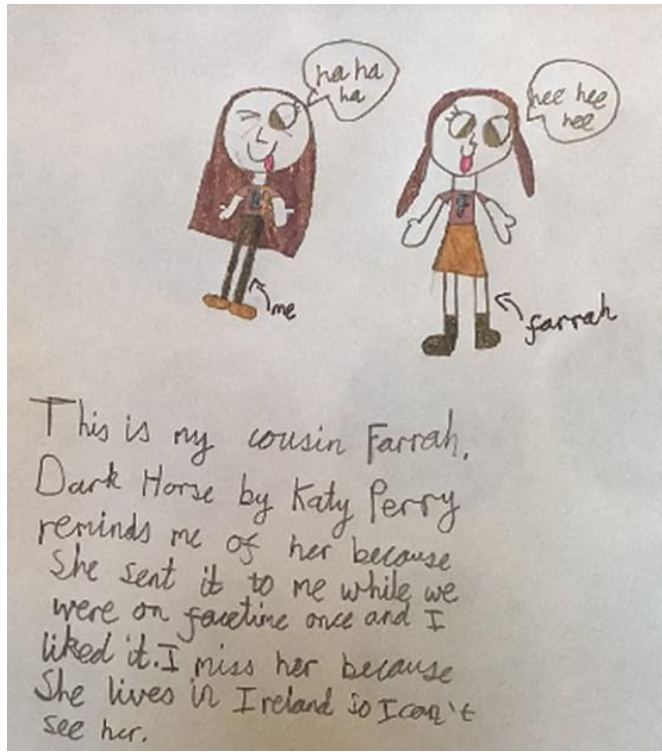 ha ha
ha
hee hee
hee
me
farrah
This is my cousin Farrah.
Dark Horse by Katy Perry
reminds me of her because
She sent it to me while we
were on facetime once and I
liked it. I miss her because
She lives in Ireland so I can't
see her.